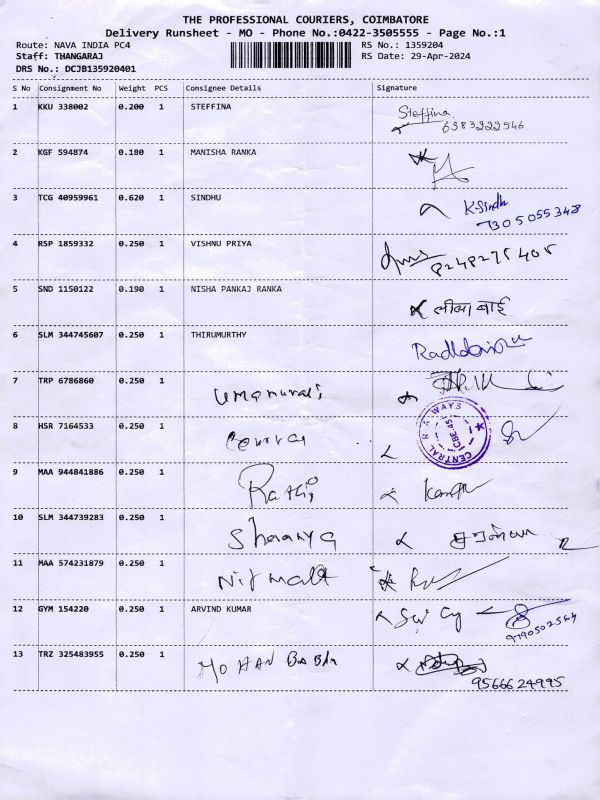 THE PROFESSIONAL COURIERS, COIMBATORE
Delivery Runsheet - MO - Phone No.:0422-3505555 - Page No.:1
Route: NAVA INDIA PC4 RS No.: 1359204
Staff: THANGARAJ RS Date: 29-Apr-2024
DRS No.: DCJB135920401
S No Consignment No Weight PCS Consignee Details Signature
1 KKU 338002 0.200 1 STEFFINA Steffina
6383222546
2 KGF 594874 0.180 1 MANISHA RANKA
3 TCG 40959961 0.620 1 SINDHU K-Sindhu
7305055348
4 RSP 1859332 0.250 1 VISHNU PRIYA 8248275405
5 SND 1150122 0.190 1 NISHA PANKAJ RANKA लीला बाई
6 SLM 344745607 0.250 1 THIRUMURTHY
7 TRP 6786860 0.250 1 Umamurali
8 HSR 7164533 0.250 1 CENTRAL RAILWAYS
9 MAA 944841886 0.250 1
10 SLM 344739283 0.250 1 Sharanya
11 MAA 574231879 0.250 1 Nirmala
12 GYM 154220 0.250 1 ARVIND KUMAR
9790502564
13 TRZ 325483955 0.250 1 MOHAN BABU
9566624995